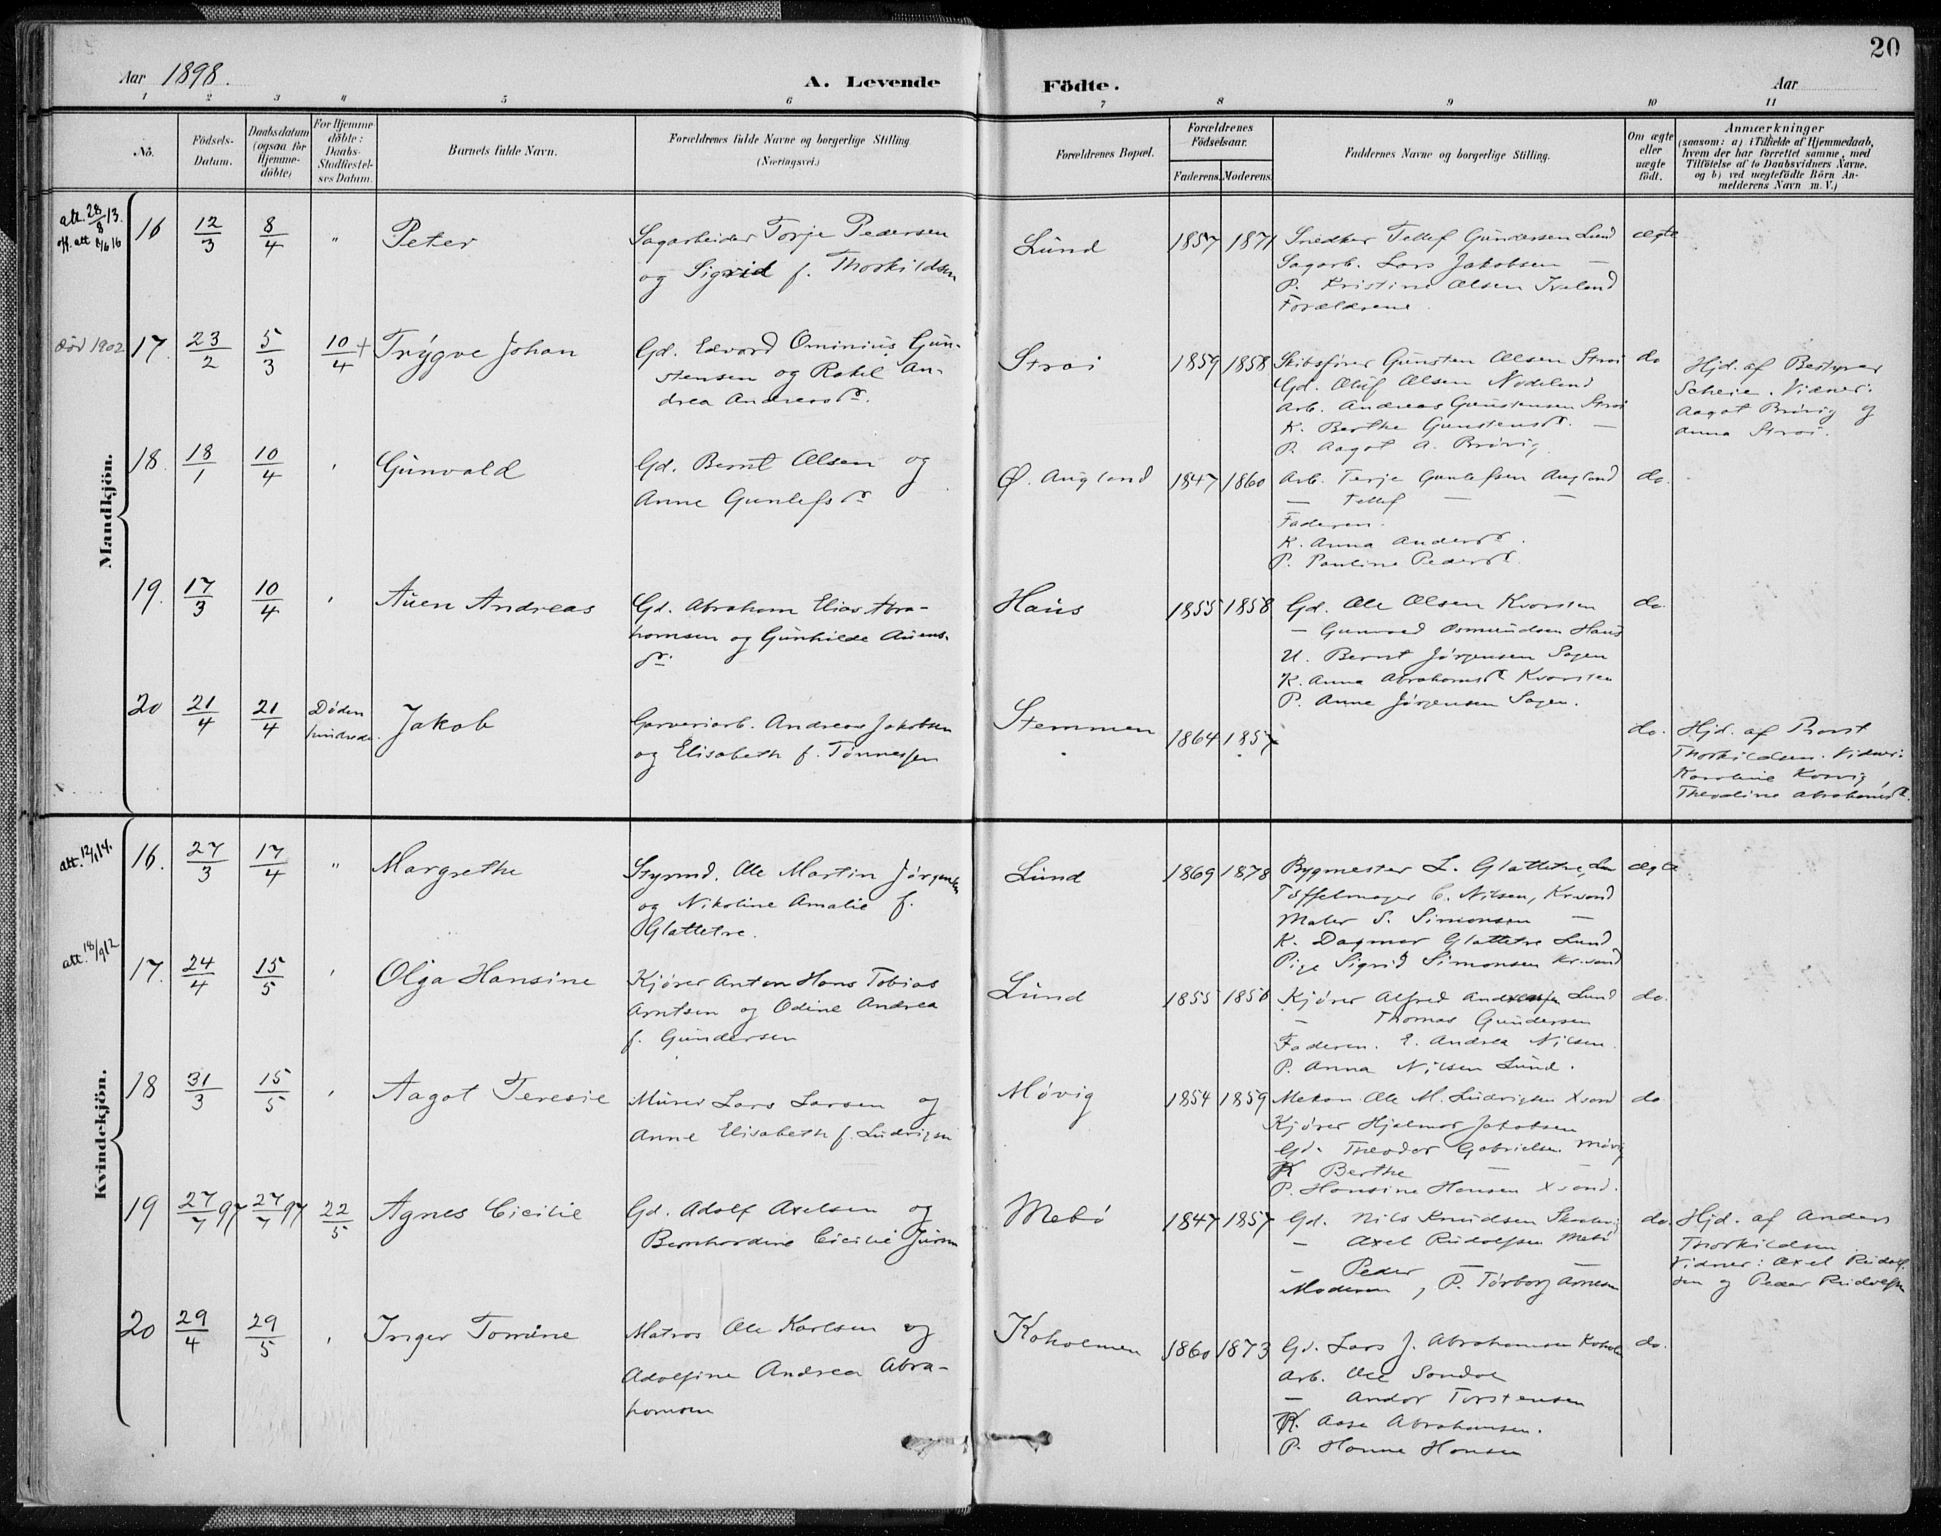 20
Aar 1898.
A. Levende Födte.
Aar
1 2 3 4 5 6 7 8 9 10 11
Nö.
Födsels-Datum.
Daabsdatum (ogsaa for Hjemme-döbte)
For Hjemme döbte: Daabs-Stadfæstel-ses Datum.
Barnets fulde Navn.
Forældrenes fulde Navne og borgerlige Stilling (Næringsvei.)
Forældrenes Bopæl.
Forældrenes Födselsaar.
Faderens. Moderens.
Faddernes Navne og borgerlige Stilling.
Om ægte eller uægte födt.
Anmærkninger
(saasom: a) i Tilfælde af Hjemmedaab,
hvem der har forrettet samme, med
Tilföielse af to Daabsvidners Navne.
og b) ved uægtefödte Börn An-
melderens Navn m. V.)
Mandkjön.
att. 28/8 13.
16 12/3 8/4 " Peter
Sagarbeider Torje Pedersen
og Sigrid f. Thorkildsen
Lund 1857 1871
Snedker Tellef Gundersen Lund
Sagarb. Lars Jakobsen —
P. Kristine Olsen Iveland
Forældrene
ægte
død 1902
17. 23/2 5/3 10/4 + Trygve Johan
Gd. Edvard Ominius Gun-
stensen og Rakel An-
drea Andreasdr.
Strai 1859 1858
Skibsfører Gunsten Olsen Strai
Gd. Oluf Olsen Nodeland
Arb. Andreas Gunstensen Strai
K. Berthe Gunstensdr. —
P. Aagot A. Brøvig
do
Hjd. af Bestyrer
Scheie. Vidner:
Aagot Brøvig og
Anna Strai.
18. 18/1 10/4 ' Gunvald
Gd. Bernt Olsen og
Anne Gunlefsdr
Ø. Augland 1847 1860
Arb. Terje Gunlefsen Augland
— Tellef — —
Faderen.
K. Anna Andersdr.
P. Pauline Pedersdr.
do.
19. 17/3 10/4 ' Auen Andreas
Gd. Abraham Elias Abra-
hamsen og Gunhilde Auens-
dr.
Haus 1855 1858
Gd. Ole Olsen Kvorsten
— Gunvald Osmundsen Haus
U. Bernt Jørgensen Sagen
K. Anna Abrahamsdr Kvorsten
P. Anne Jørgensen Sagen.
do.
20 21/4 21/4 Døden hindrede. Jakob
Garveriarb. Andreas Jakobsen
og Elisabeth f. Tønnessen
Stemmen 1864 1857
do.
Hjd. af Provst
Thorkildsen. Vidner:
Karoline Kosvig,
Theodine Abrahamsdr.
Kvindekjön.
att. 12/1 14.
16. 27/3 17/4 " Margrethe
Styrmd. Ole Martin Jørgensen
og Nikoline Amalie f.
Glattetre.
Lund 1869 1878
Bygmester L. Glattetre, Lund
Tøffelmager C. Nilsen, Kr.sand
Maler S. Simonsen —
K. Dagmar Glattetre Lund
Pige Sigrid Simonsen Kr.sand
ægte
att. 18/9 12
17. 24/4 15/5 ' Olga Hansine
Kjører Anton Hans Tobias
Arntsen og Odine Andrea
f. Gundersen
Lund 1855 1856
Kjører Alfred Lund
— Thomas Gundersen
Faderen. E. Andrea Nilsen.
P. Anna Nilsen Lund.
do.
18 31/3 15/5 ' Aagot Teresie
Murer Lars Larsen og
Anne Elisabeth f. Ludvigsen
Møvig 1854 1859
Mekan. Ole M. Ludvigsen Xsand
Kjører Hjalmar Jakobsen
Gd. Theodor Gabrielsen Møvig
K Berthe — —
P. Hansine Hansen Xsand.
do
19 27/7 97 27/7 97 22/5 Agnes Cicilie
Gd. Adolf Axelsen og
Bernhardine Cicilie
Mebø 1847 1857
Gd. Nils Knudsen
— Axel Rudolfsen Mebø
— Peder —
Moderen, P. Torborg Arnesen
do.
Hjd. af Anders
Thorkildsen.
Vidner: Axel Rudolf-
sen og Peder Rudolfsen
20 29/4 29/5 ' Inger Tomine
Matros Ole Karlsen og
Adolfine Andrea Abra-
hamsen
Koholmen 1860 1873
Gd. Lars J. Abrahamsen Koholm
Arb. Ole Sandal
— Andor Torstensen
K. Aase Abrahamsen.
P. Hanne Hansen
do.